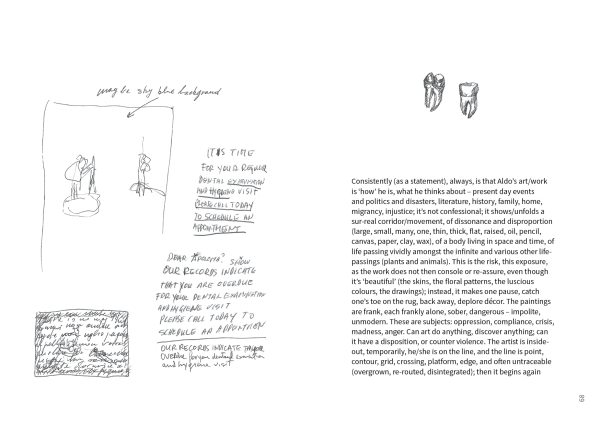 maybe sky blue background
IT IS TIME
FOR YOUR REGULAR
DENTAL EXAMINATION
AND HYGIENE VISIT
PLEASE CALL TODAY
TO SCHEDULE AN
APPOINTMENT
DEAR
OUR RECORDS INDICATE
THAT YOU ARE OVERDUE
FOR YOUR DENTAL EXAMINATION
AND HYGIENE VISIT
PLEASE CALL TODAY TO
SCHEDULE AN
OUR RECORDS INDICATE
OVERDUE for your dental
and hygiene visit
Consistently (as a statement), always, is that Aldo’s art/work
is ‘how’ he is, what he thinks about – present day events
and politics and disasters, literature, history, family, home,
migrancy, injustice; it’s not confessional; it shows/unfolds a
sur-real corridor/movement, of dissonance and disproportion
(large, small, many, one, thin, thick, flat, raised, oil, pencil,
canvas, paper, clay, wax), of a body living in space and time, of
life passing vividly amongst the infinite and various other life-
passings (plants and animals). This is the risk, this exposure,
as the work does not then console or re-assure, even though
it’s ‘beautiful’ (the skins, the floral patterns, the luscious
colours, the drawings); instead, it makes one pause, catch
one’s toe on the rug, back away, deplore décor. The paintings
are frank, each frankly alone, sober, dangerous – impolite,
unmodern. These are subjects: oppression, compliance, crisis,
madness, anger. Can art do anything, discover anything; can
it have a disposition, or counter violence. The artist is inside-
out, temporarily, he/she is on the line, and the line is point,
contour, grid, crossing, platform, edge, and often untraceable
(overgrown, re-routed, disintegrated); then it begins again
68